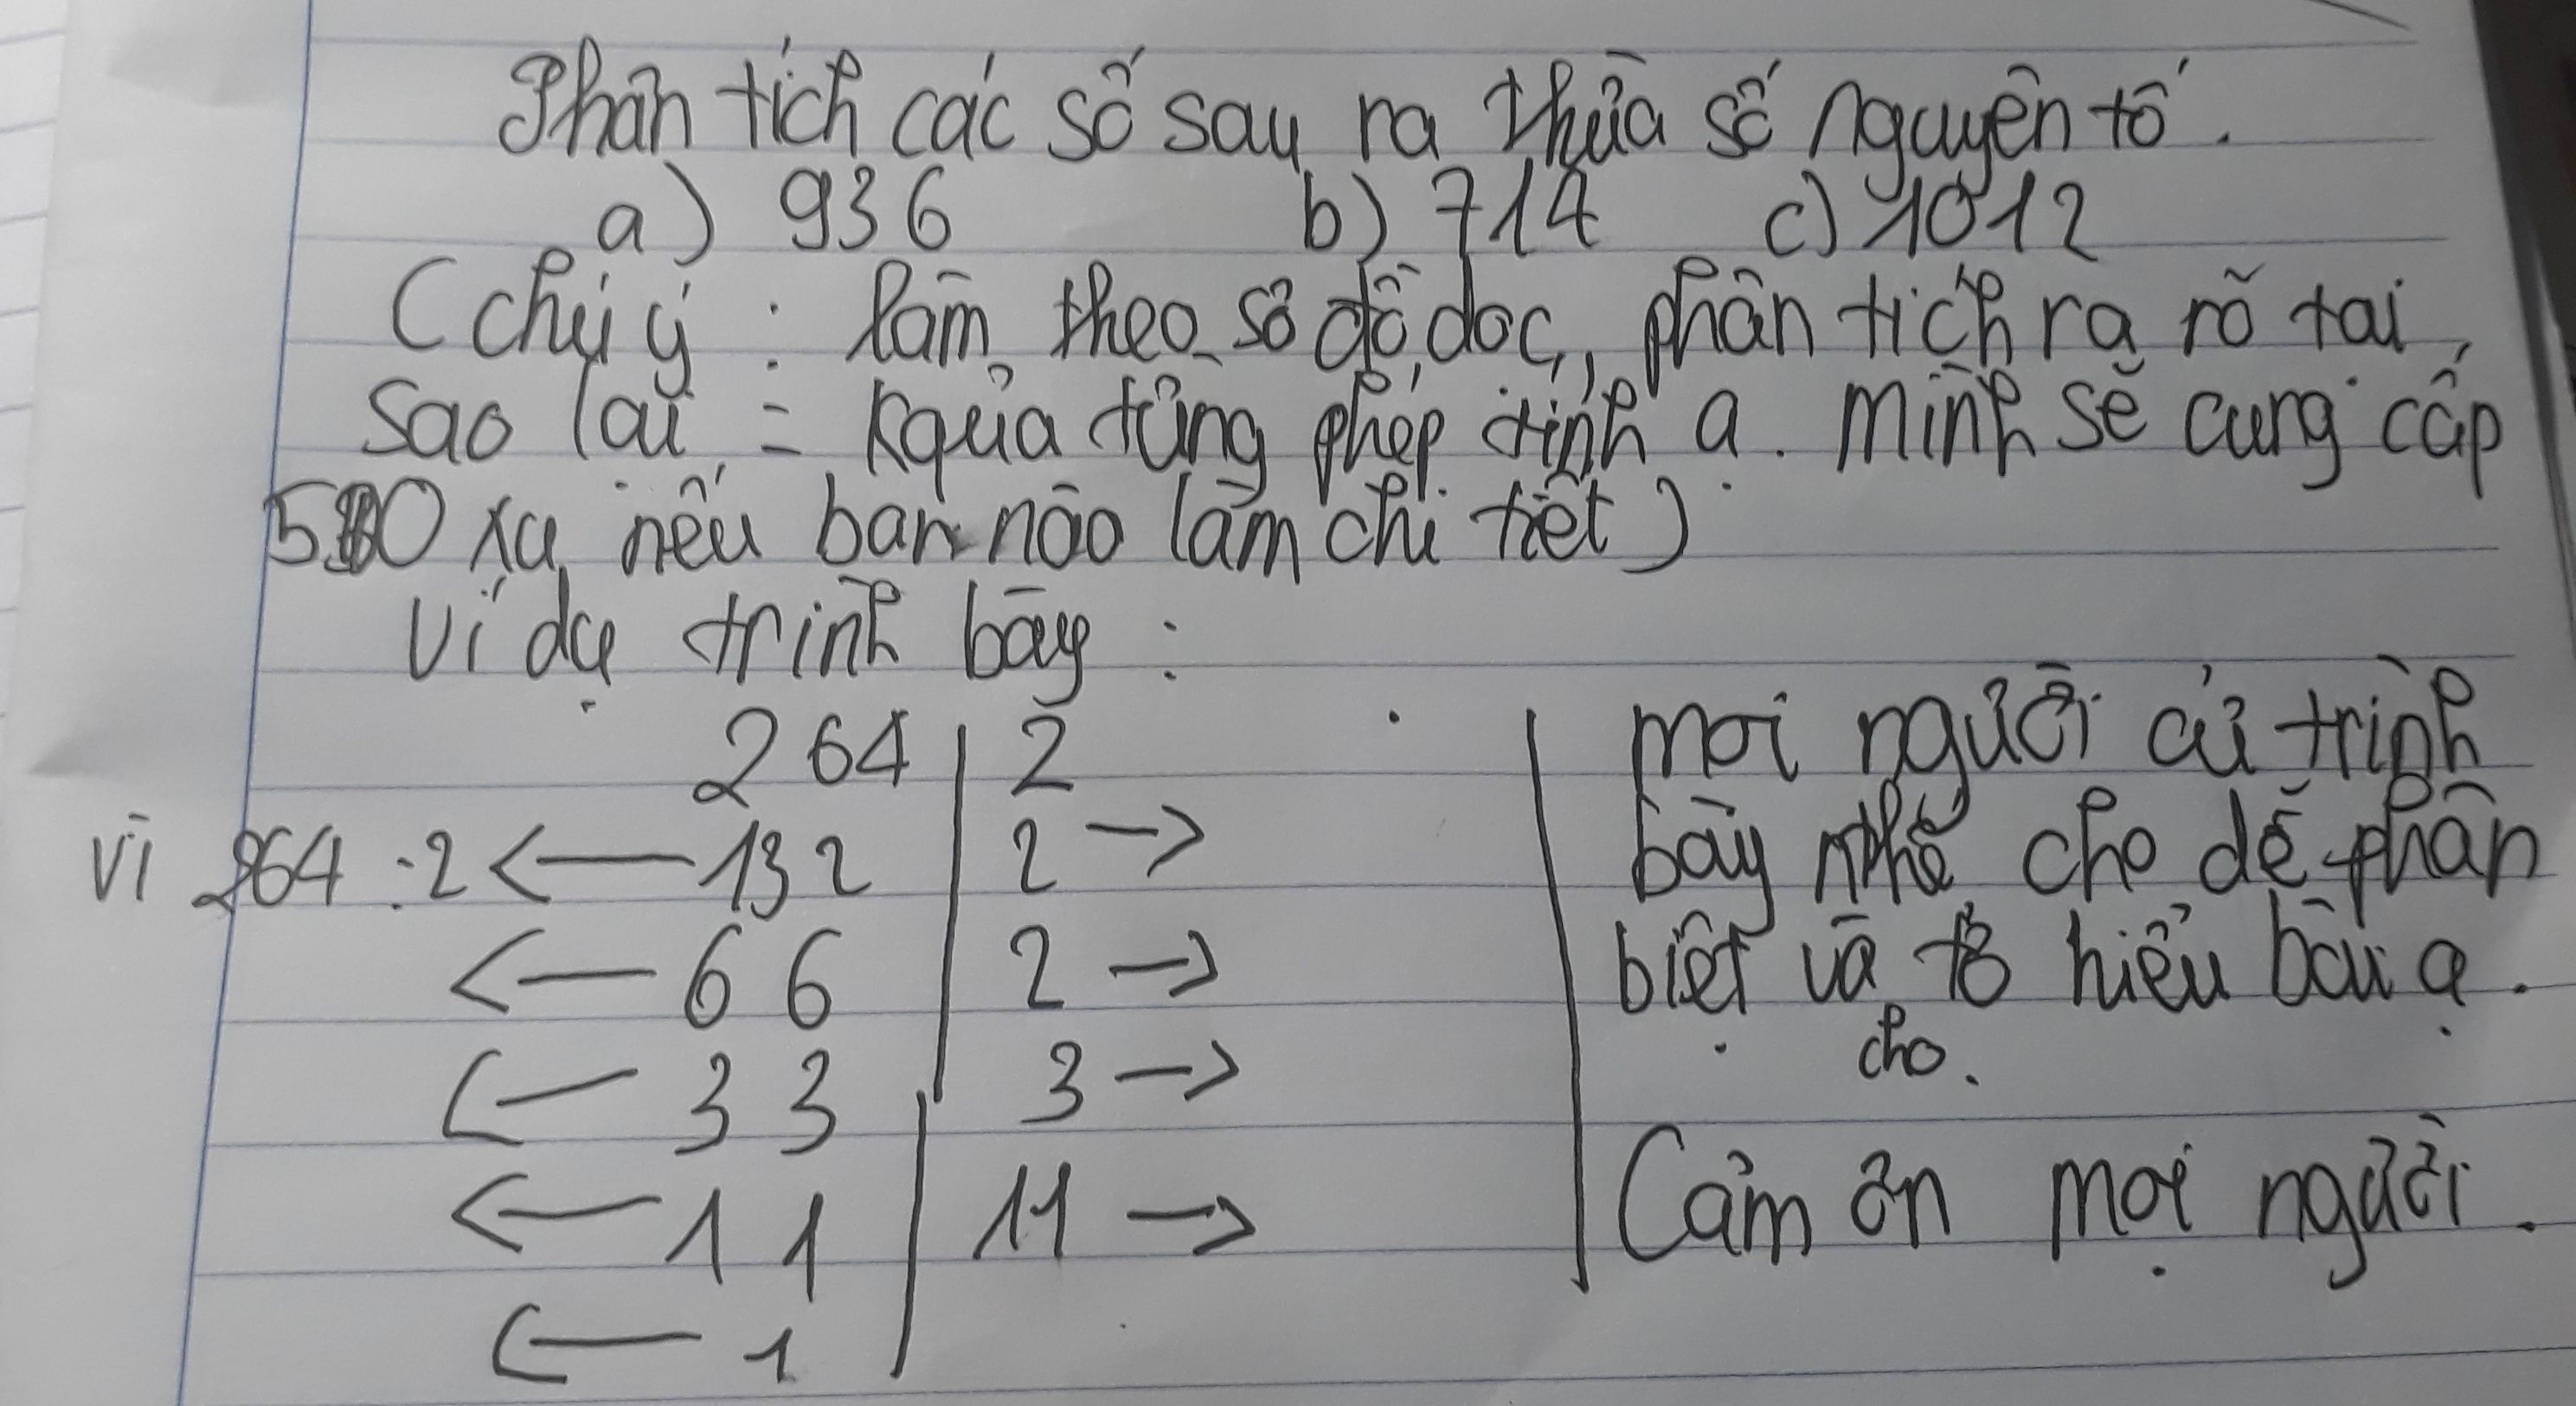 Phân tích các số sau ra thừa số nguyên tố.
a) 936 b) 714 c) 1012
(chú ý : làm theo sơ đồ dọc, phân tích ra rõ tại
sao lại = kquả từng phép tính ạ. Mình sẽ cung cấp
xu nếu bạn nào làm chi tiết)
Ví dụ trình bày :
264 | 2
vì 264 : 2 <— 132 | 2 —>
<— 66 | 2 —>
<— 33 | 3 —>
<— 11 | 11 —>
<— 1
mọi người cứ trình
bày như thế cho dễ phân
biệt và tớ hiểu bài ạ.
cho.
Cảm ơn mọi người.